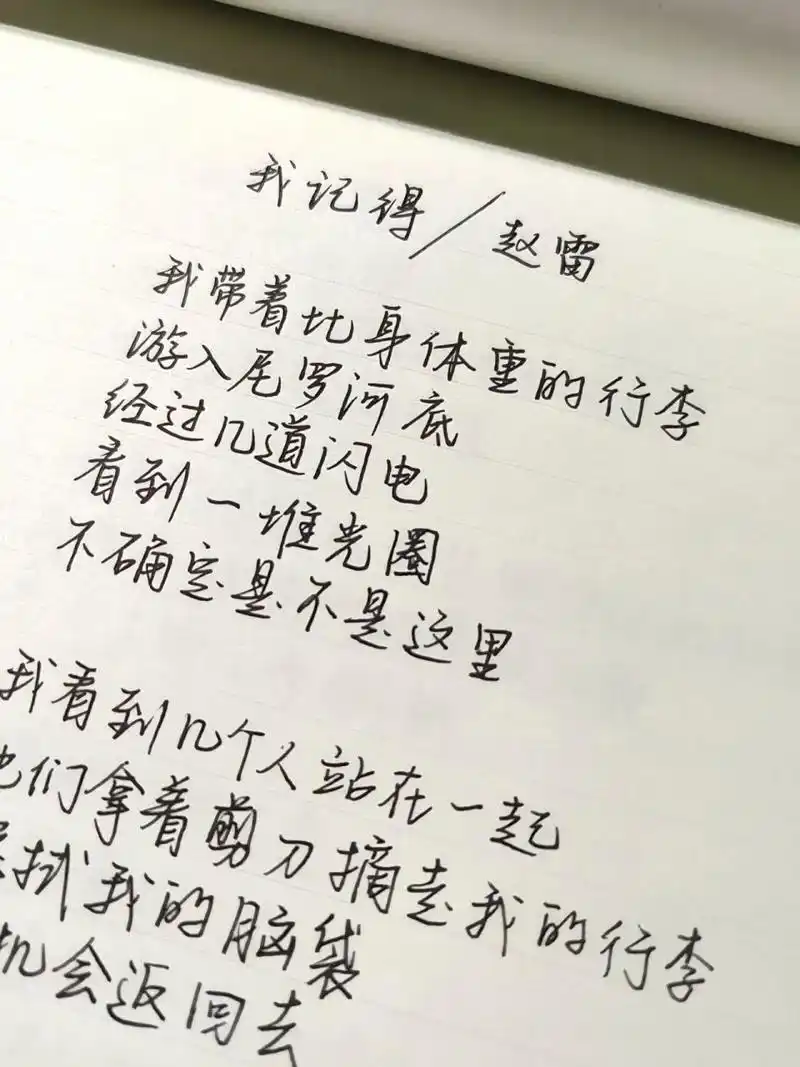 我记得/赵雷
我带着比身体重的行李
游入尼罗河底
经过几道闪电
看到一堆光圈
不确定是不是这里
我看到几个人站在一起
他们拿着剪刀摘走我的行李
擦拭我的脑袋
机会返回去